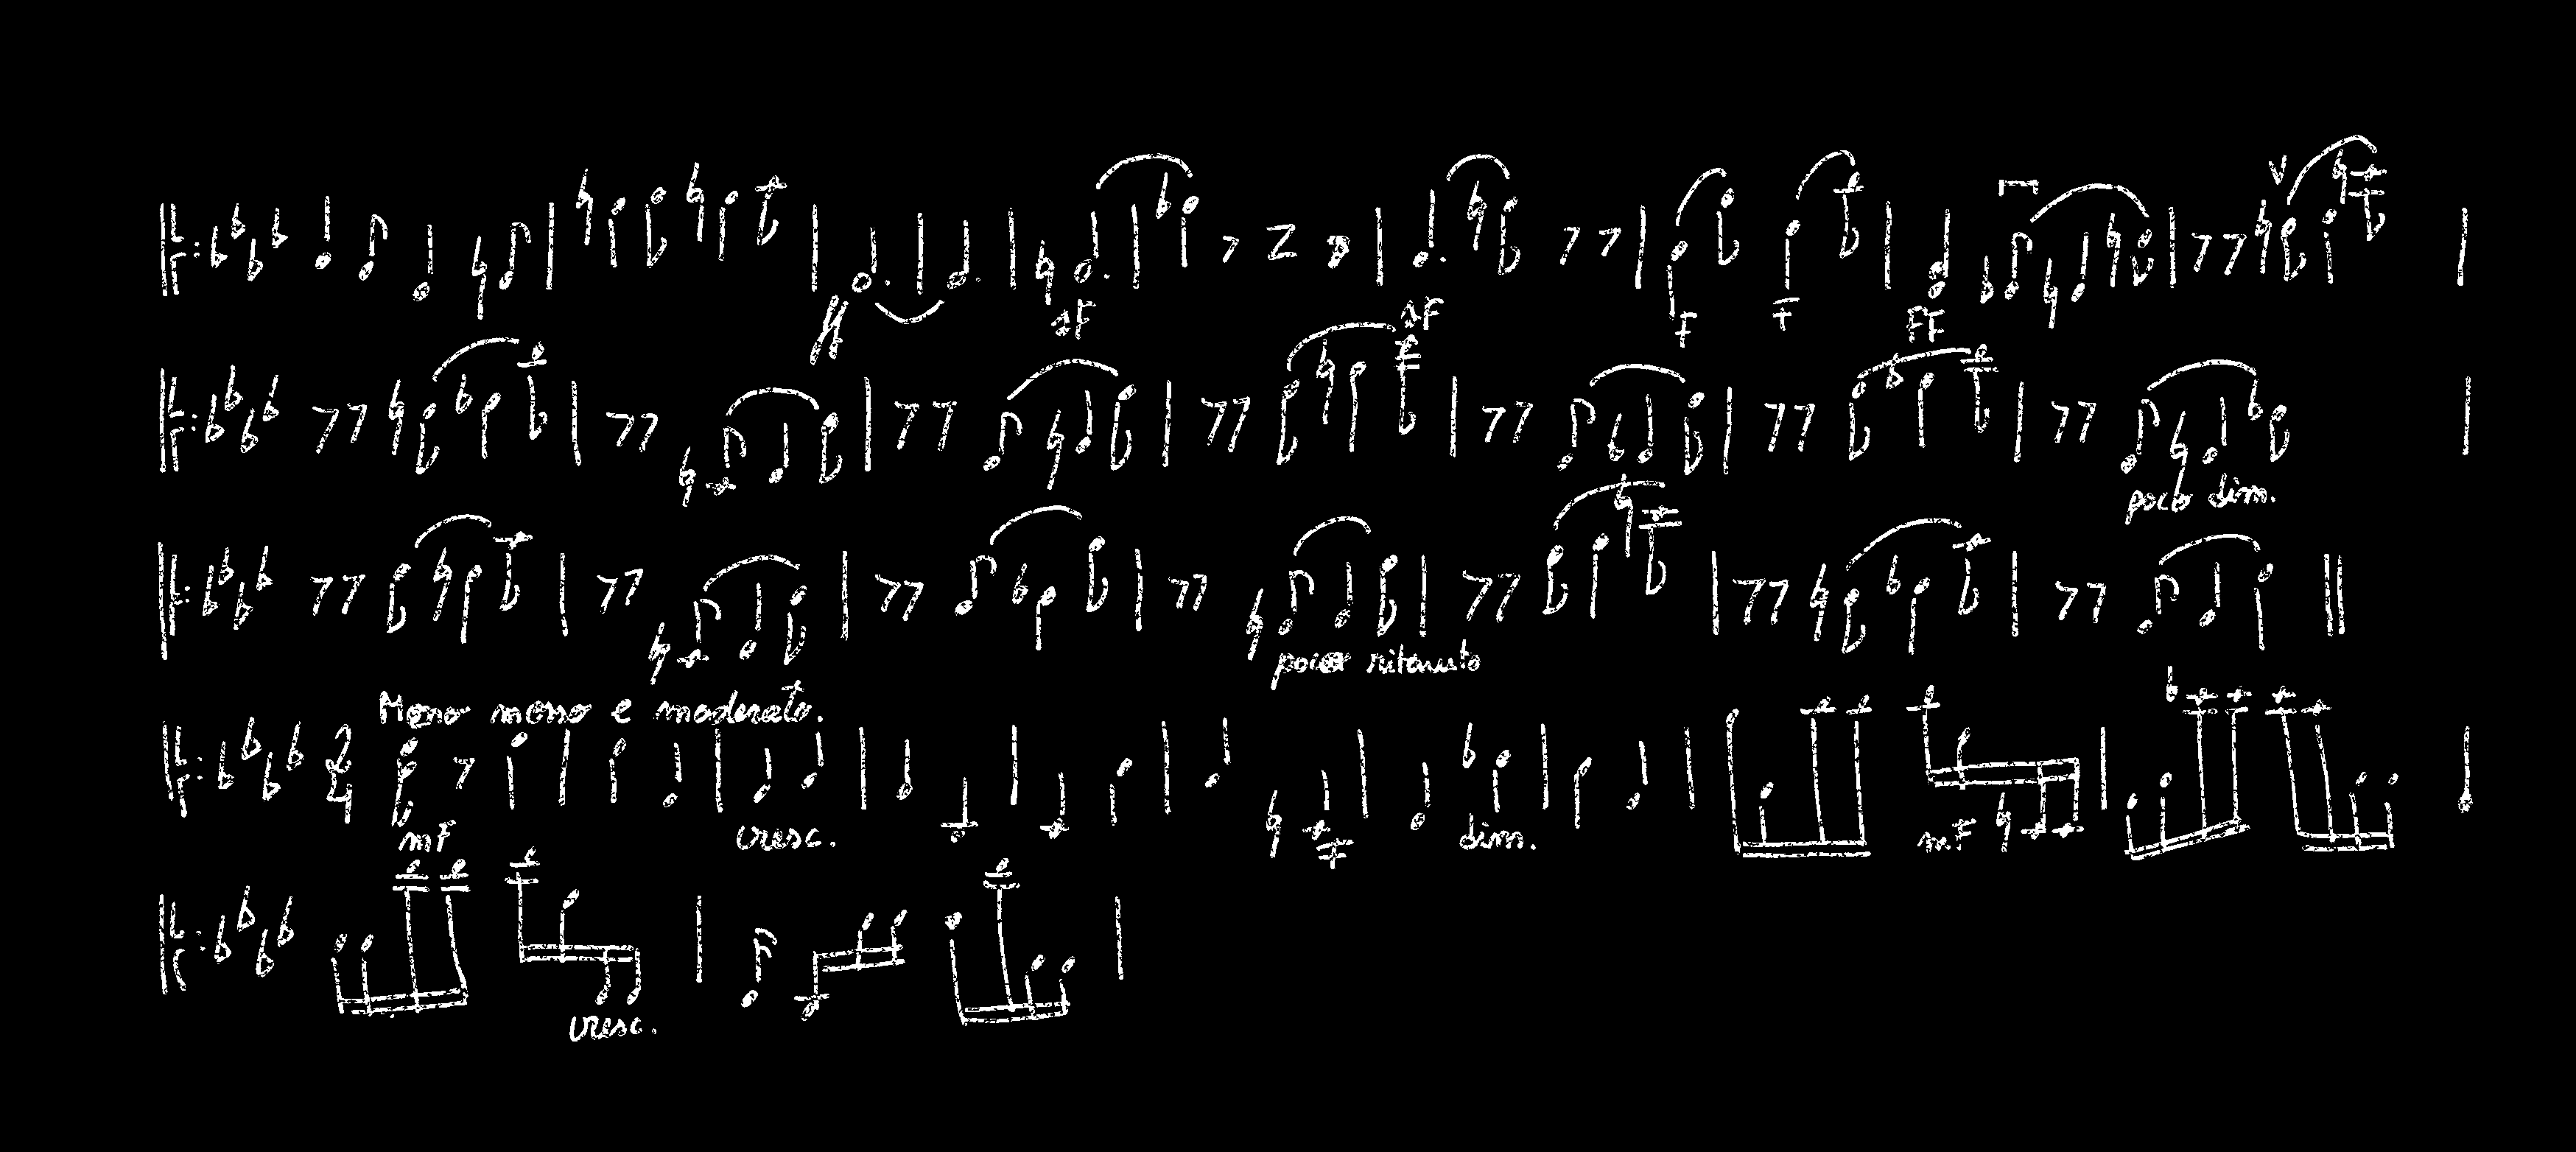 ff sF sF F F FF
poco dim.
poco ritenuto
Meno mosso e moderato.
mF cresc. dim. mF
cresc.